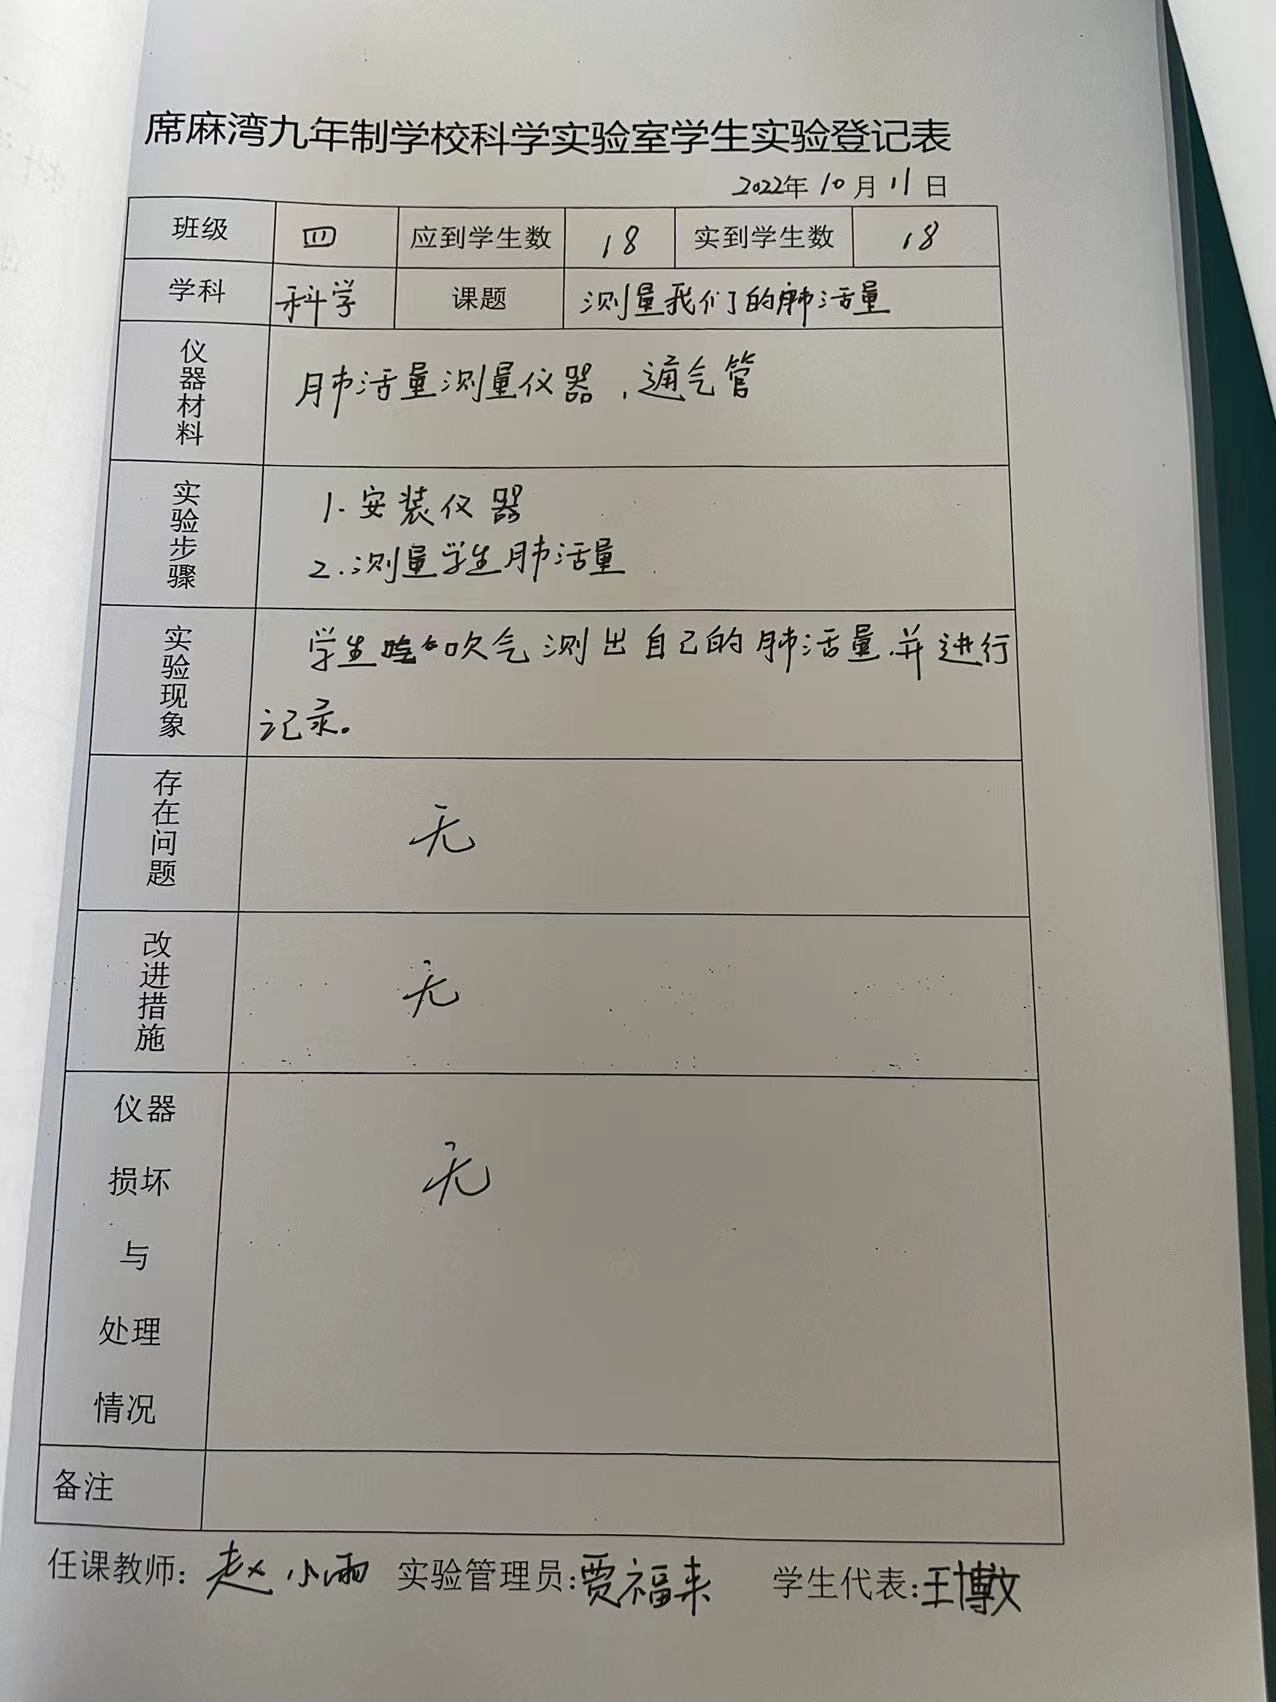 席麻湾九年制学校科学实验室学生实验登记表
2022年10月11日
班级 四 应到学生数 18 实到学生数 18
学科 科学 课题 测量我们的肺活量
仪器材料 肺活量测量仪器，通气管
实验步骤 1.安装仪器
2.测量学生肺活量
实验现象 学生吹气测出自己的肺活量并进行
记录。
存在问题 无
改进措施 无
仪器
损坏 无
与
处理
情况
备注
任课教师：赵小雨 实验管理员：贾福来 学生代表：王博文